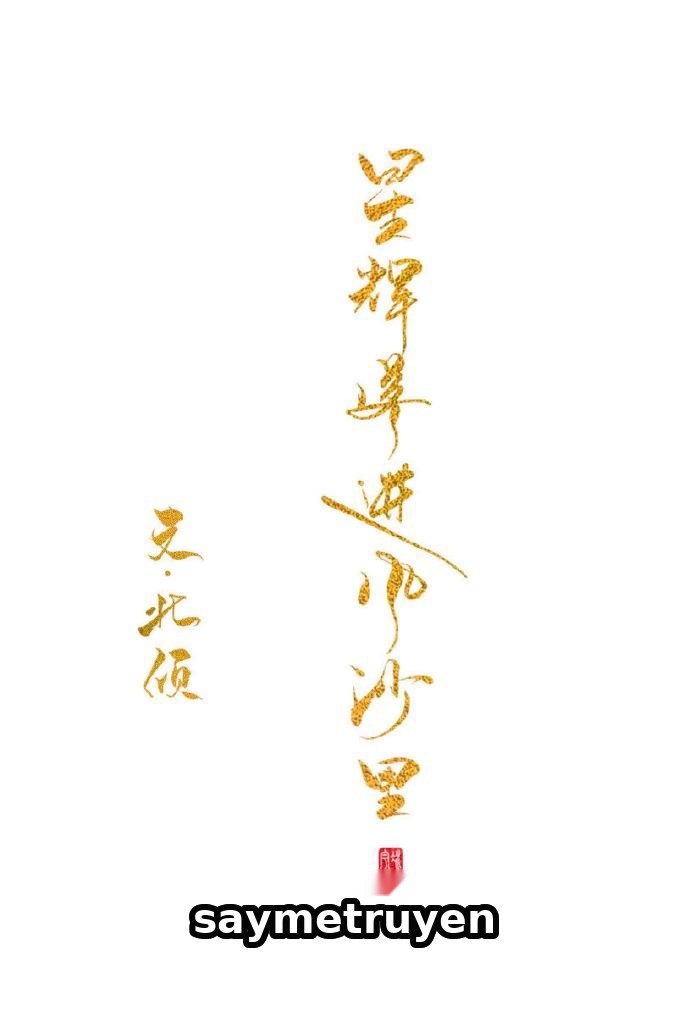 星辉落进风沙里
文·北倾
saymetruyen